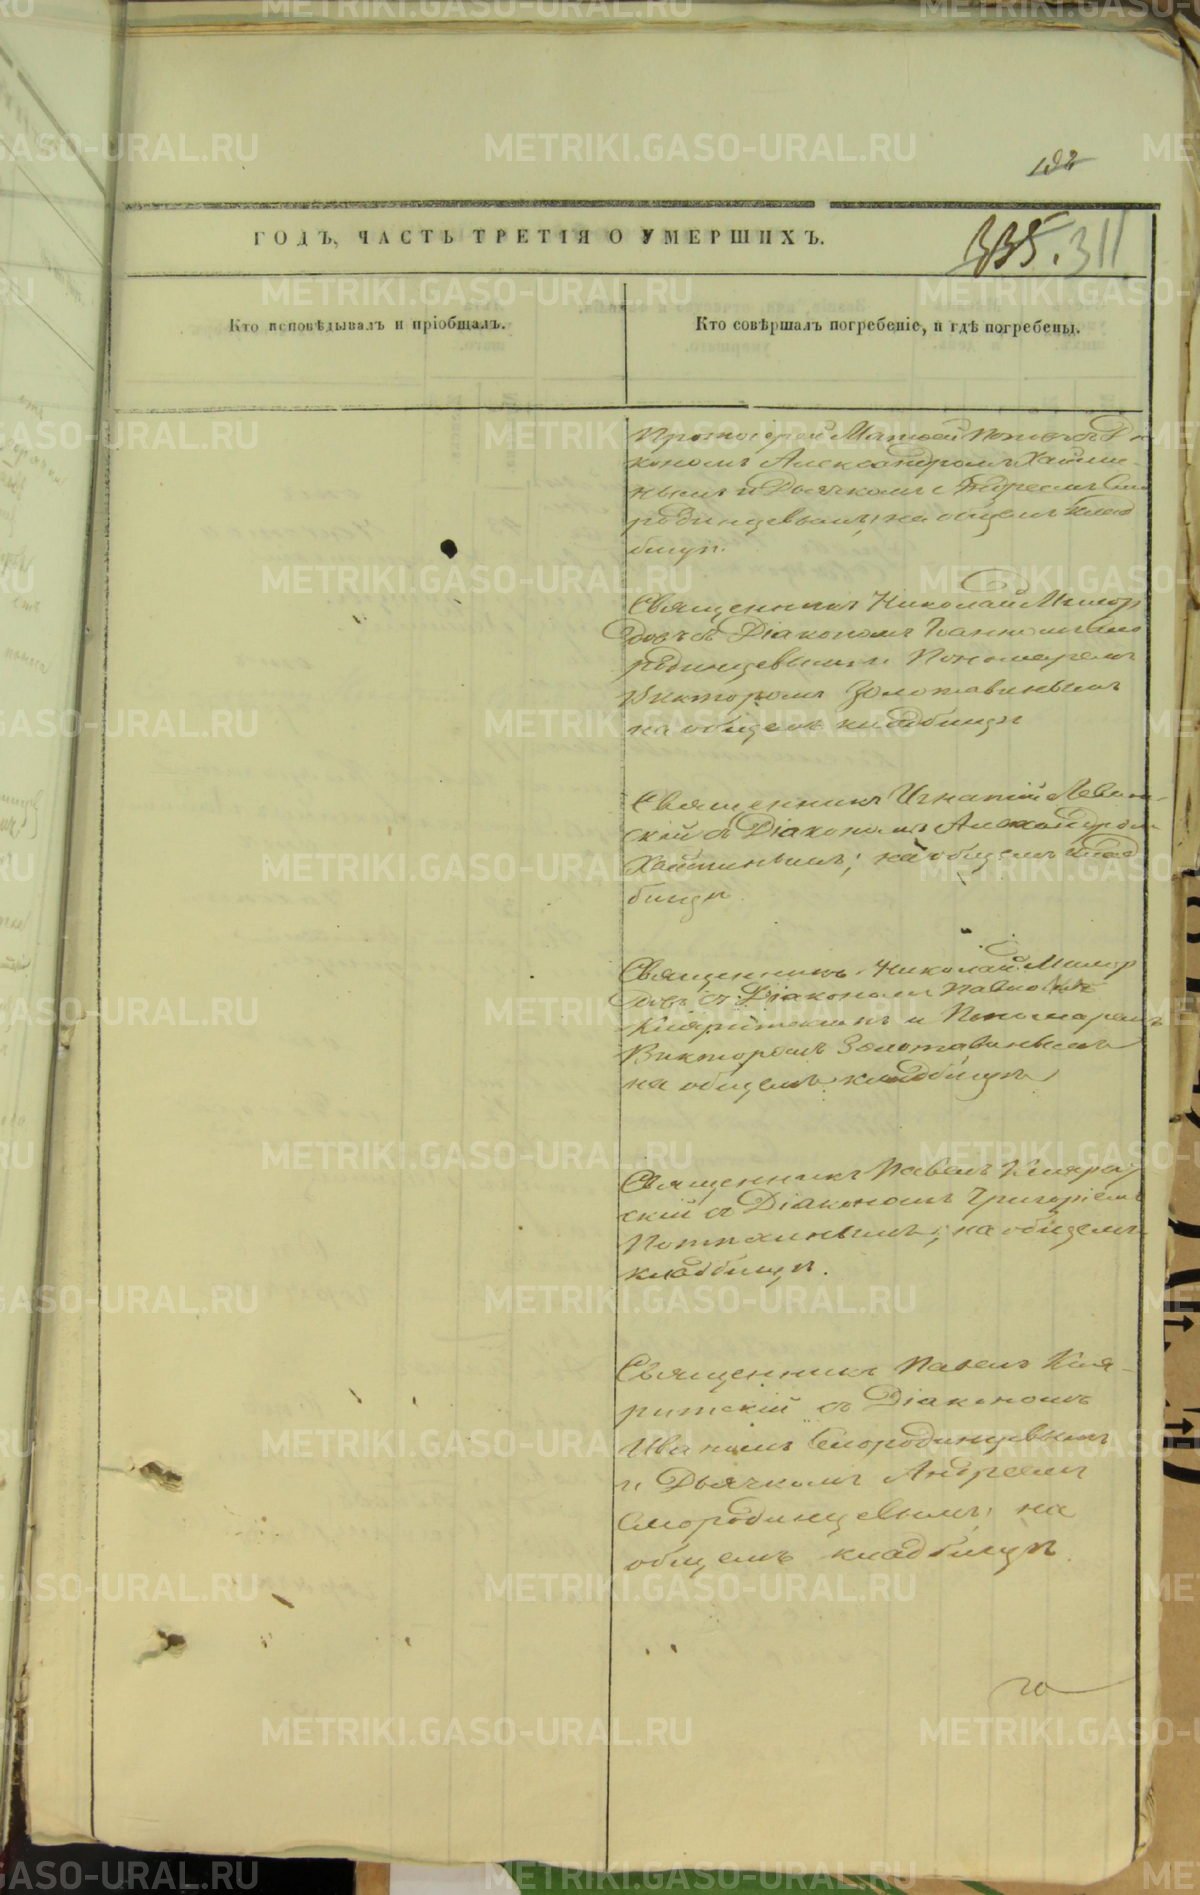 192
ГОДЪ, ЧАСТЬ ТРЕТІЯ О УМЕРШИХЪ.
335. 311
Кто исповѣдывалъ и пріобщалъ.
Кто совѣршалъ погребеніе, и гдѣ погребены.
Протоіерей Матфей Поповъ съ Діа
кономъ Александромъ Хатин-
нымъ и Дьячкомъ Андреемъ Смо
родинцевымъ; на общемъ клад
бищѣ.
Священникъ Николай Милор
довъ съ Діакономъ Іоанномъ Смо
родинцевымъ и Пономаремъ
Викторомъ Золотавинымъ
на общемъ кладбищѣ
Священникъ Игнатій Левит-
скій съ Діакономъ Александром
на общемъ клад
бищѣ.
Священникъ Николай Милор
довъ съ Діакономъ Павломъ
и Пономаремъ
Викторомъ Золотавинымъ
на общемъ кладбищѣ
Священникъ Павелъ
скій съ Діакономъ Григоріемъ
на общемъ
кладбищѣ.
Священникъ Павелъ Кля-
ритскій съ Діакономъ
Иваномъ Смородинцевымъ
и Дьячкомъ Андреемъ
Смородинцевымъ; на
общемъ кладбищѣ.
METRIKI.GASO-URAL.RU